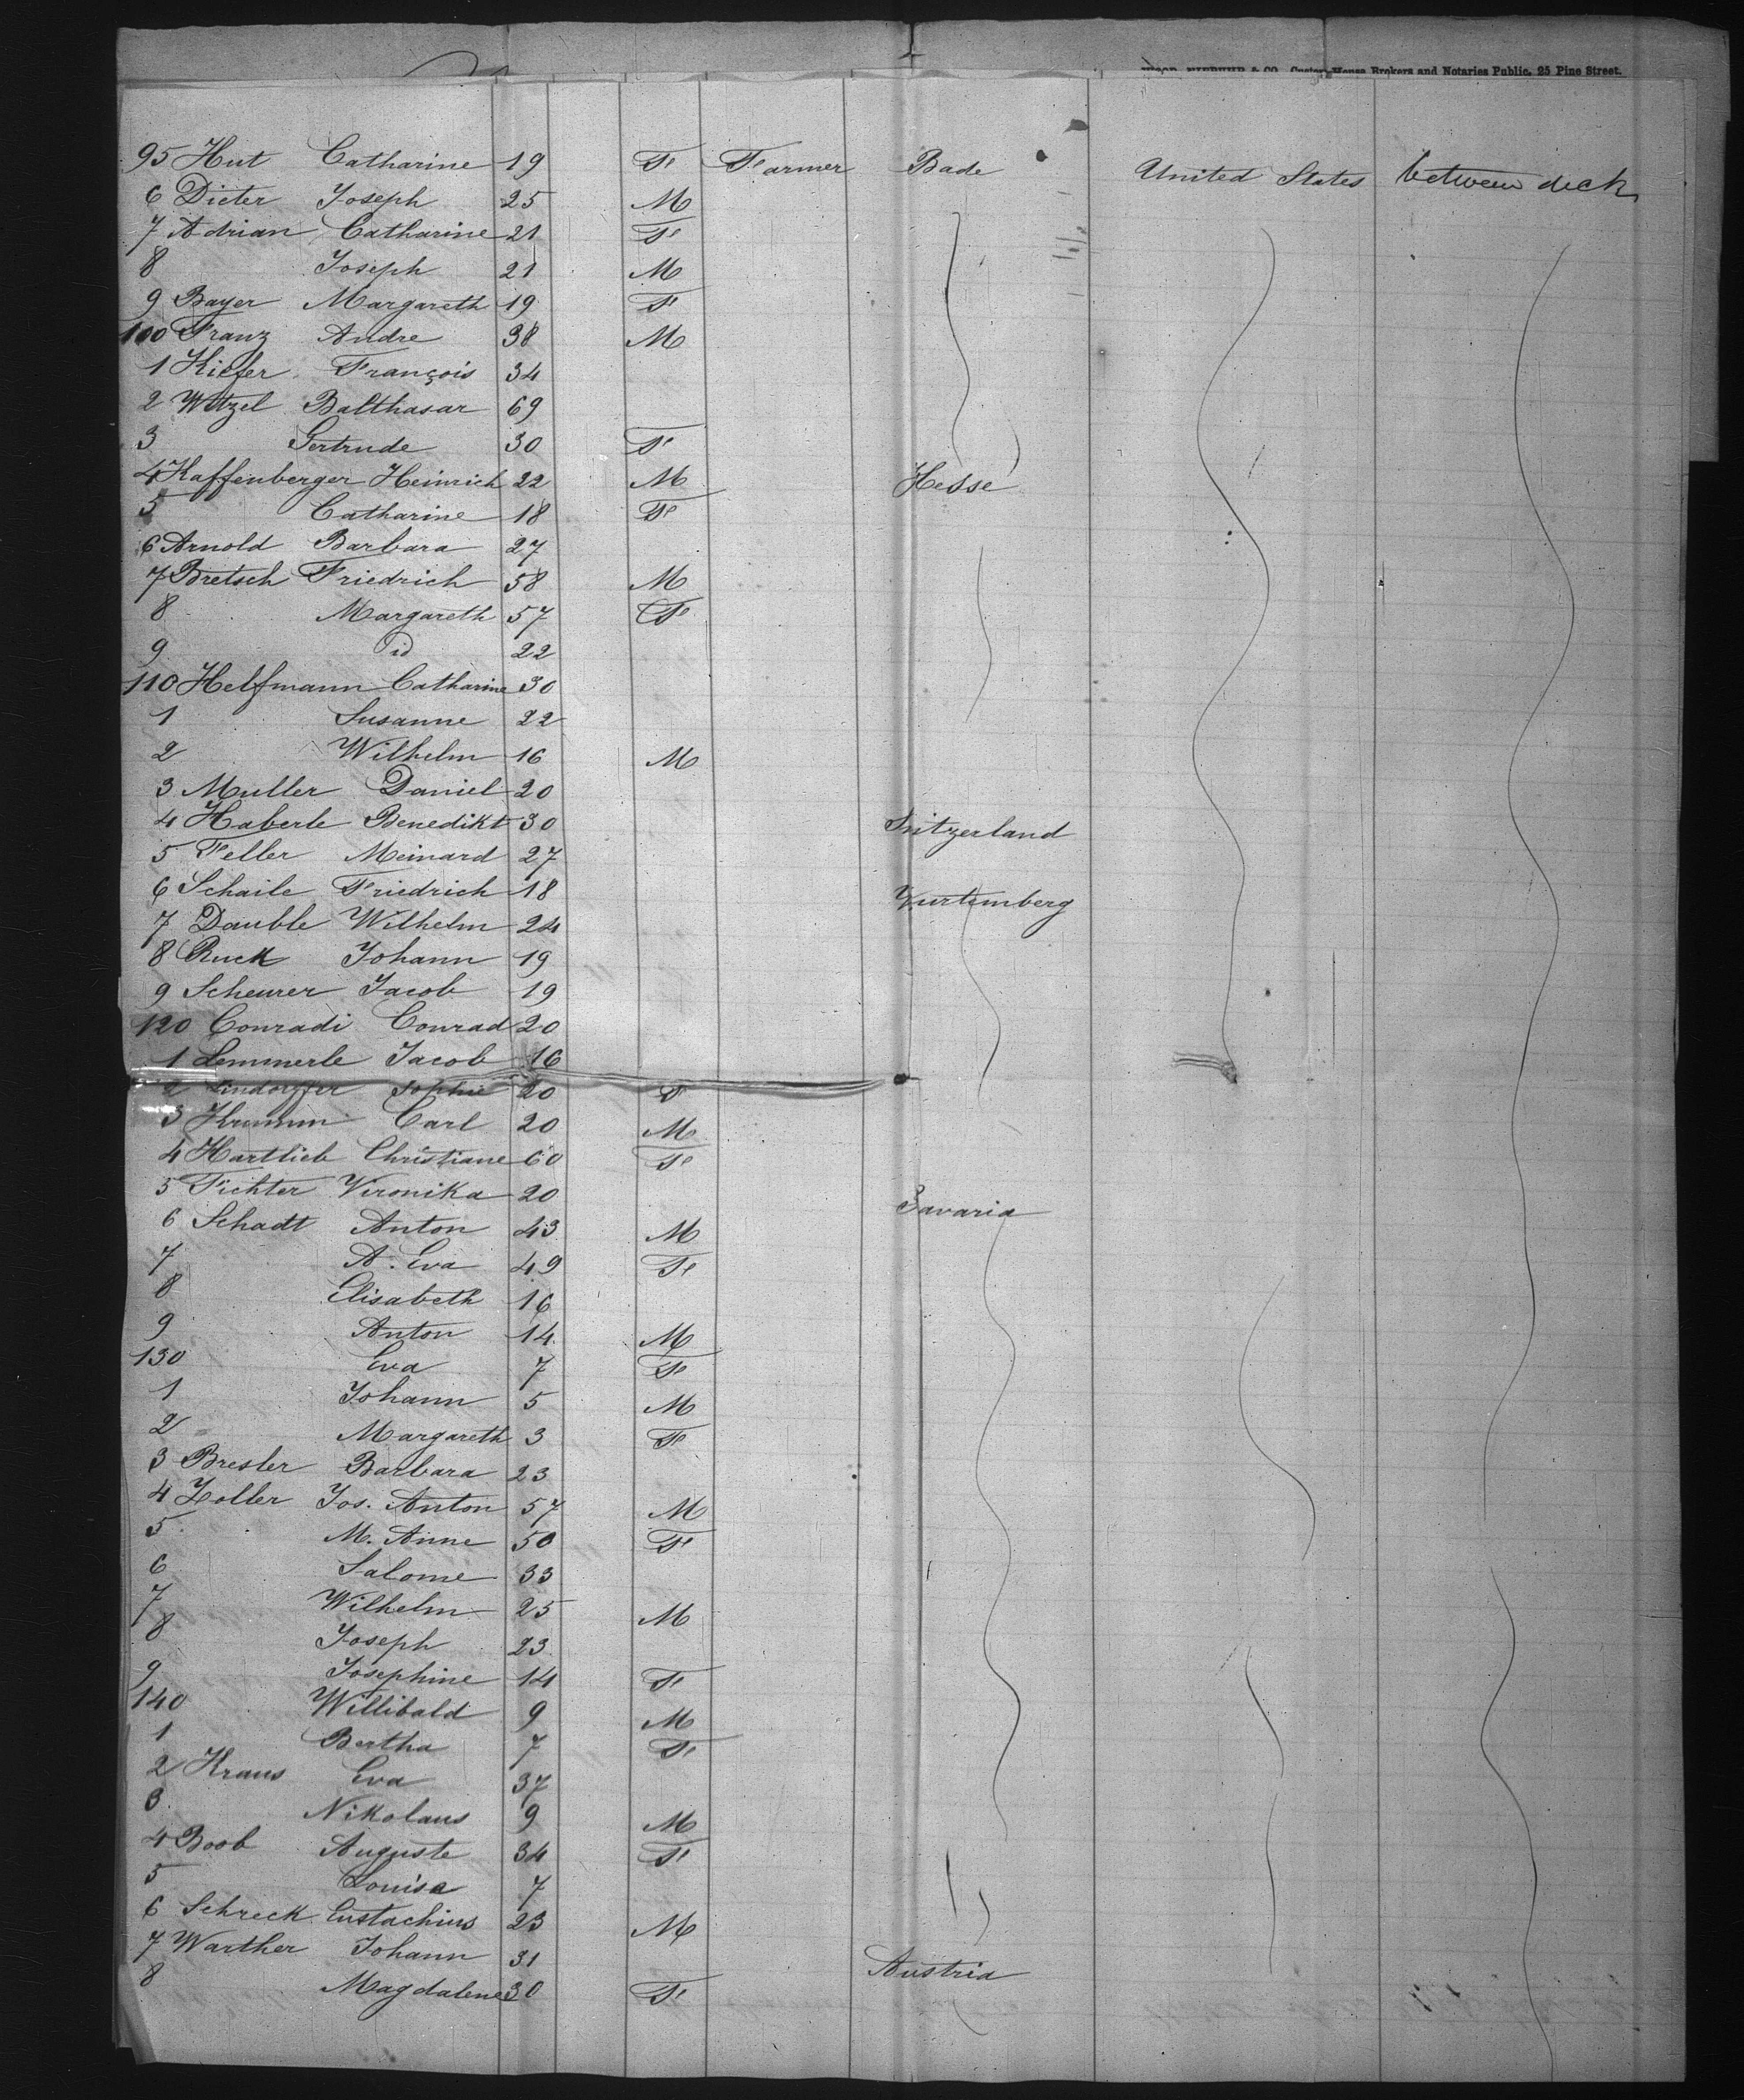 & CO., Custom-House Brokers and Notaries Public, 25 Pine Street.
95 Hut Catharine 19 F Farmer Bade United States between deck
6 Dieter Joseph 25 M
7 Adrian Catharine 21 F
8 Joseph 21 M
9 Bayer Margareth 19 F
100 Franz Andre 38 M
1 Kiefer François 34
2 Wetzel Balthasar 69
3 Gertrude 30 F
4 Kaffenberger Heinrich 22 M Hesse
5 Catharine 18 F
6 Arnold Barbara 27
7 Bretsch Friedrich 58 M
8 Margareth 57 F
9 id 22
110 Helfmann Catharine 30
1 Susanne 22
2 Wilhelm 16 M
3 Muller Daniel 20
4 Haberle Benedikt 30 Switzerland
5 Feller Meinard 27
6 Schaile Friedrich 18 Wurtemberg
7 Dauble Wilhelm 24
8 Ruck Johann 19
9 Scheurer Jacob 19
120 Conradi Conrad 20
1 Lemmerle Jacob 16
2 Lindorffer Sophie 20 F
3 Krumm Carl 20 M
4 Hartlieb Christiane 60 F
5 Fichter Vironika 20 Bavaria
6 Schadt Anton 43 M
7 A. Eva 49 F
8 Elisabeth 16
9 Anton 14 M
130 Eva 7 F
1 Johann 5 M
2 Margareth 3 F
3 Bresler Barbara 23
4 Zoller Jos. Anton 57 M
5 M. Anne 50 F
6 Salome 33
7 Wilhelm 25 M
8 Joseph 23
9 Josephine 14 F
140 Willibald 9 M
1 Bertha 7 F
2 Kraus Eva 37
3 Nikolaus 9 M
4 Boob Auguste 34 F
5 Louisa 7
6 Schreck Eustachius 23 M
7 Warther Johann 31 Austria
8 Magdalene 30 F